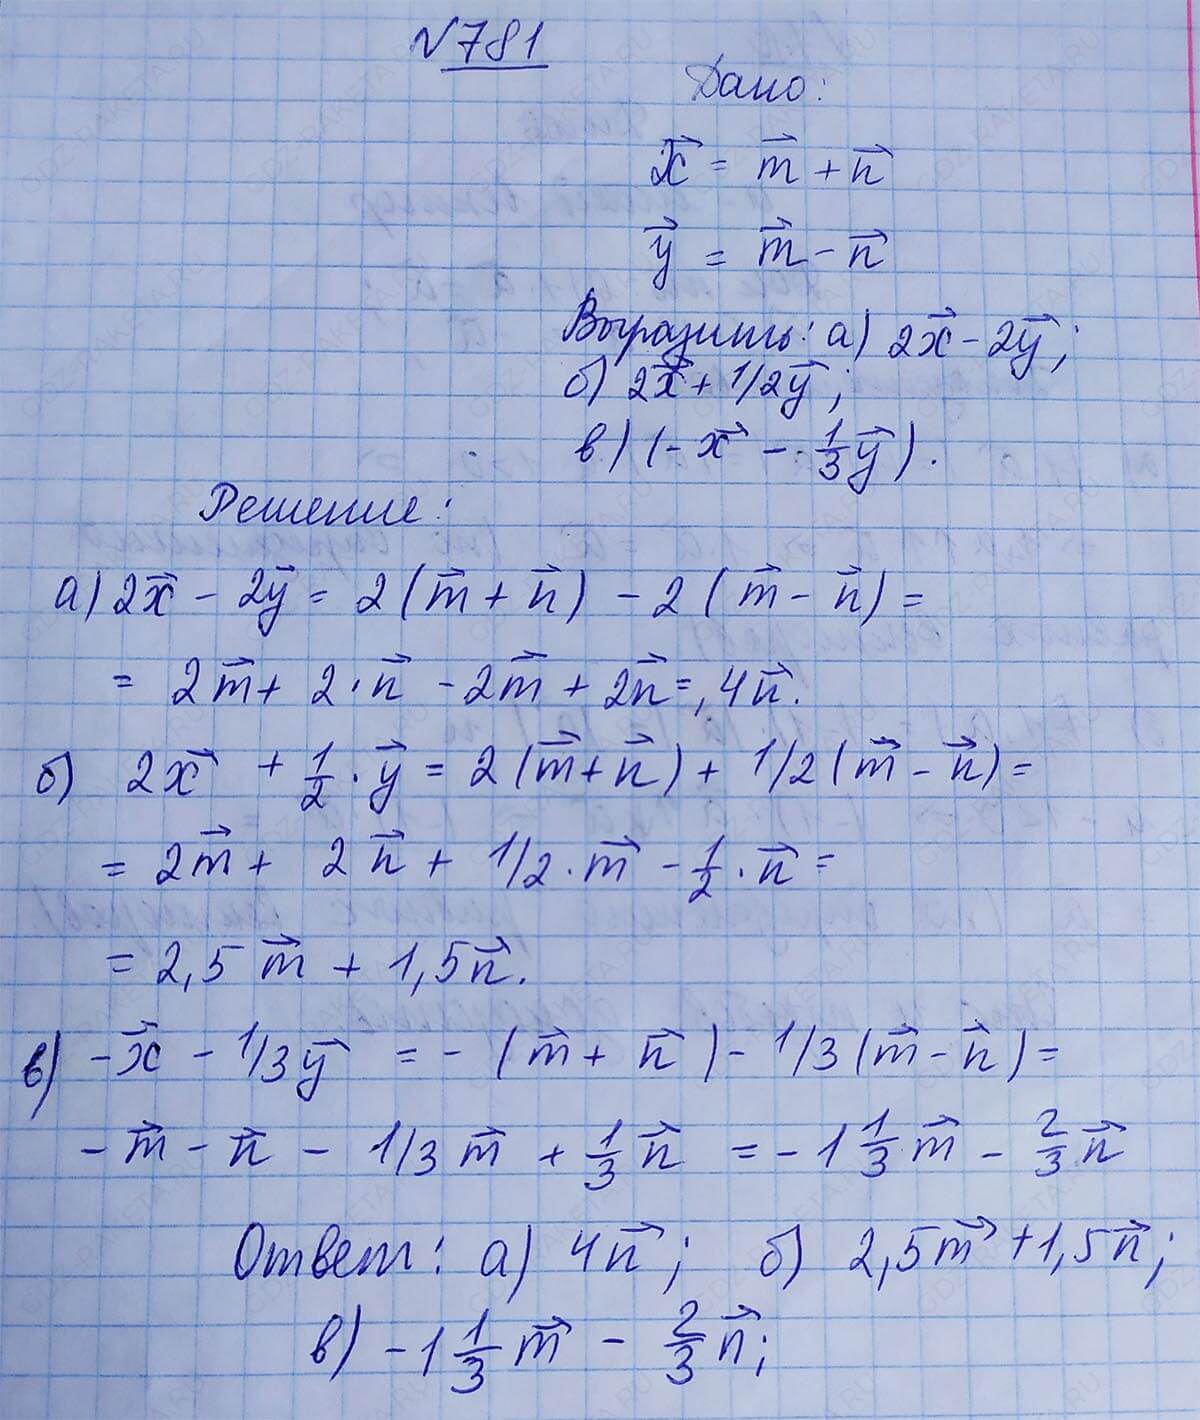 №781
Дано:
x⃗ = m⃗ + n⃗
y⃗ = m⃗ - n⃗
Выразить: а) 2x⃗ - 2y⃗;
б) 2x⃗ + 1/2y⃗;
в) (-x⃗ - 1/3y⃗).
Решение:
а) 2x⃗ - 2y⃗ = 2(m⃗ + n⃗) - 2(m⃗ - n⃗) =
= 2m⃗ + 2·n⃗ - 2m⃗ + 2n⃗ = 4n⃗.
б) 2x⃗ + 1/2·y⃗ = 2(m⃗ + n⃗) + 1/2(m⃗ - n⃗) =
= 2m⃗ + 2n⃗ + 1/2·m⃗ - 1/2·n⃗ =
= 2,5m⃗ + 1,5n⃗.
в) -x⃗ - 1/3y⃗ = -(m⃗ + n⃗) - 1/3(m⃗ - n⃗) =
-m⃗ - n⃗ - 1/3m⃗ + 1/3n⃗ = -1 1/3m⃗ - 2/3n⃗
Ответ: а) 4n⃗; б) 2,5m⃗ + 1,5n⃗;
в) -1 1/3m⃗ - 2/3n⃗;